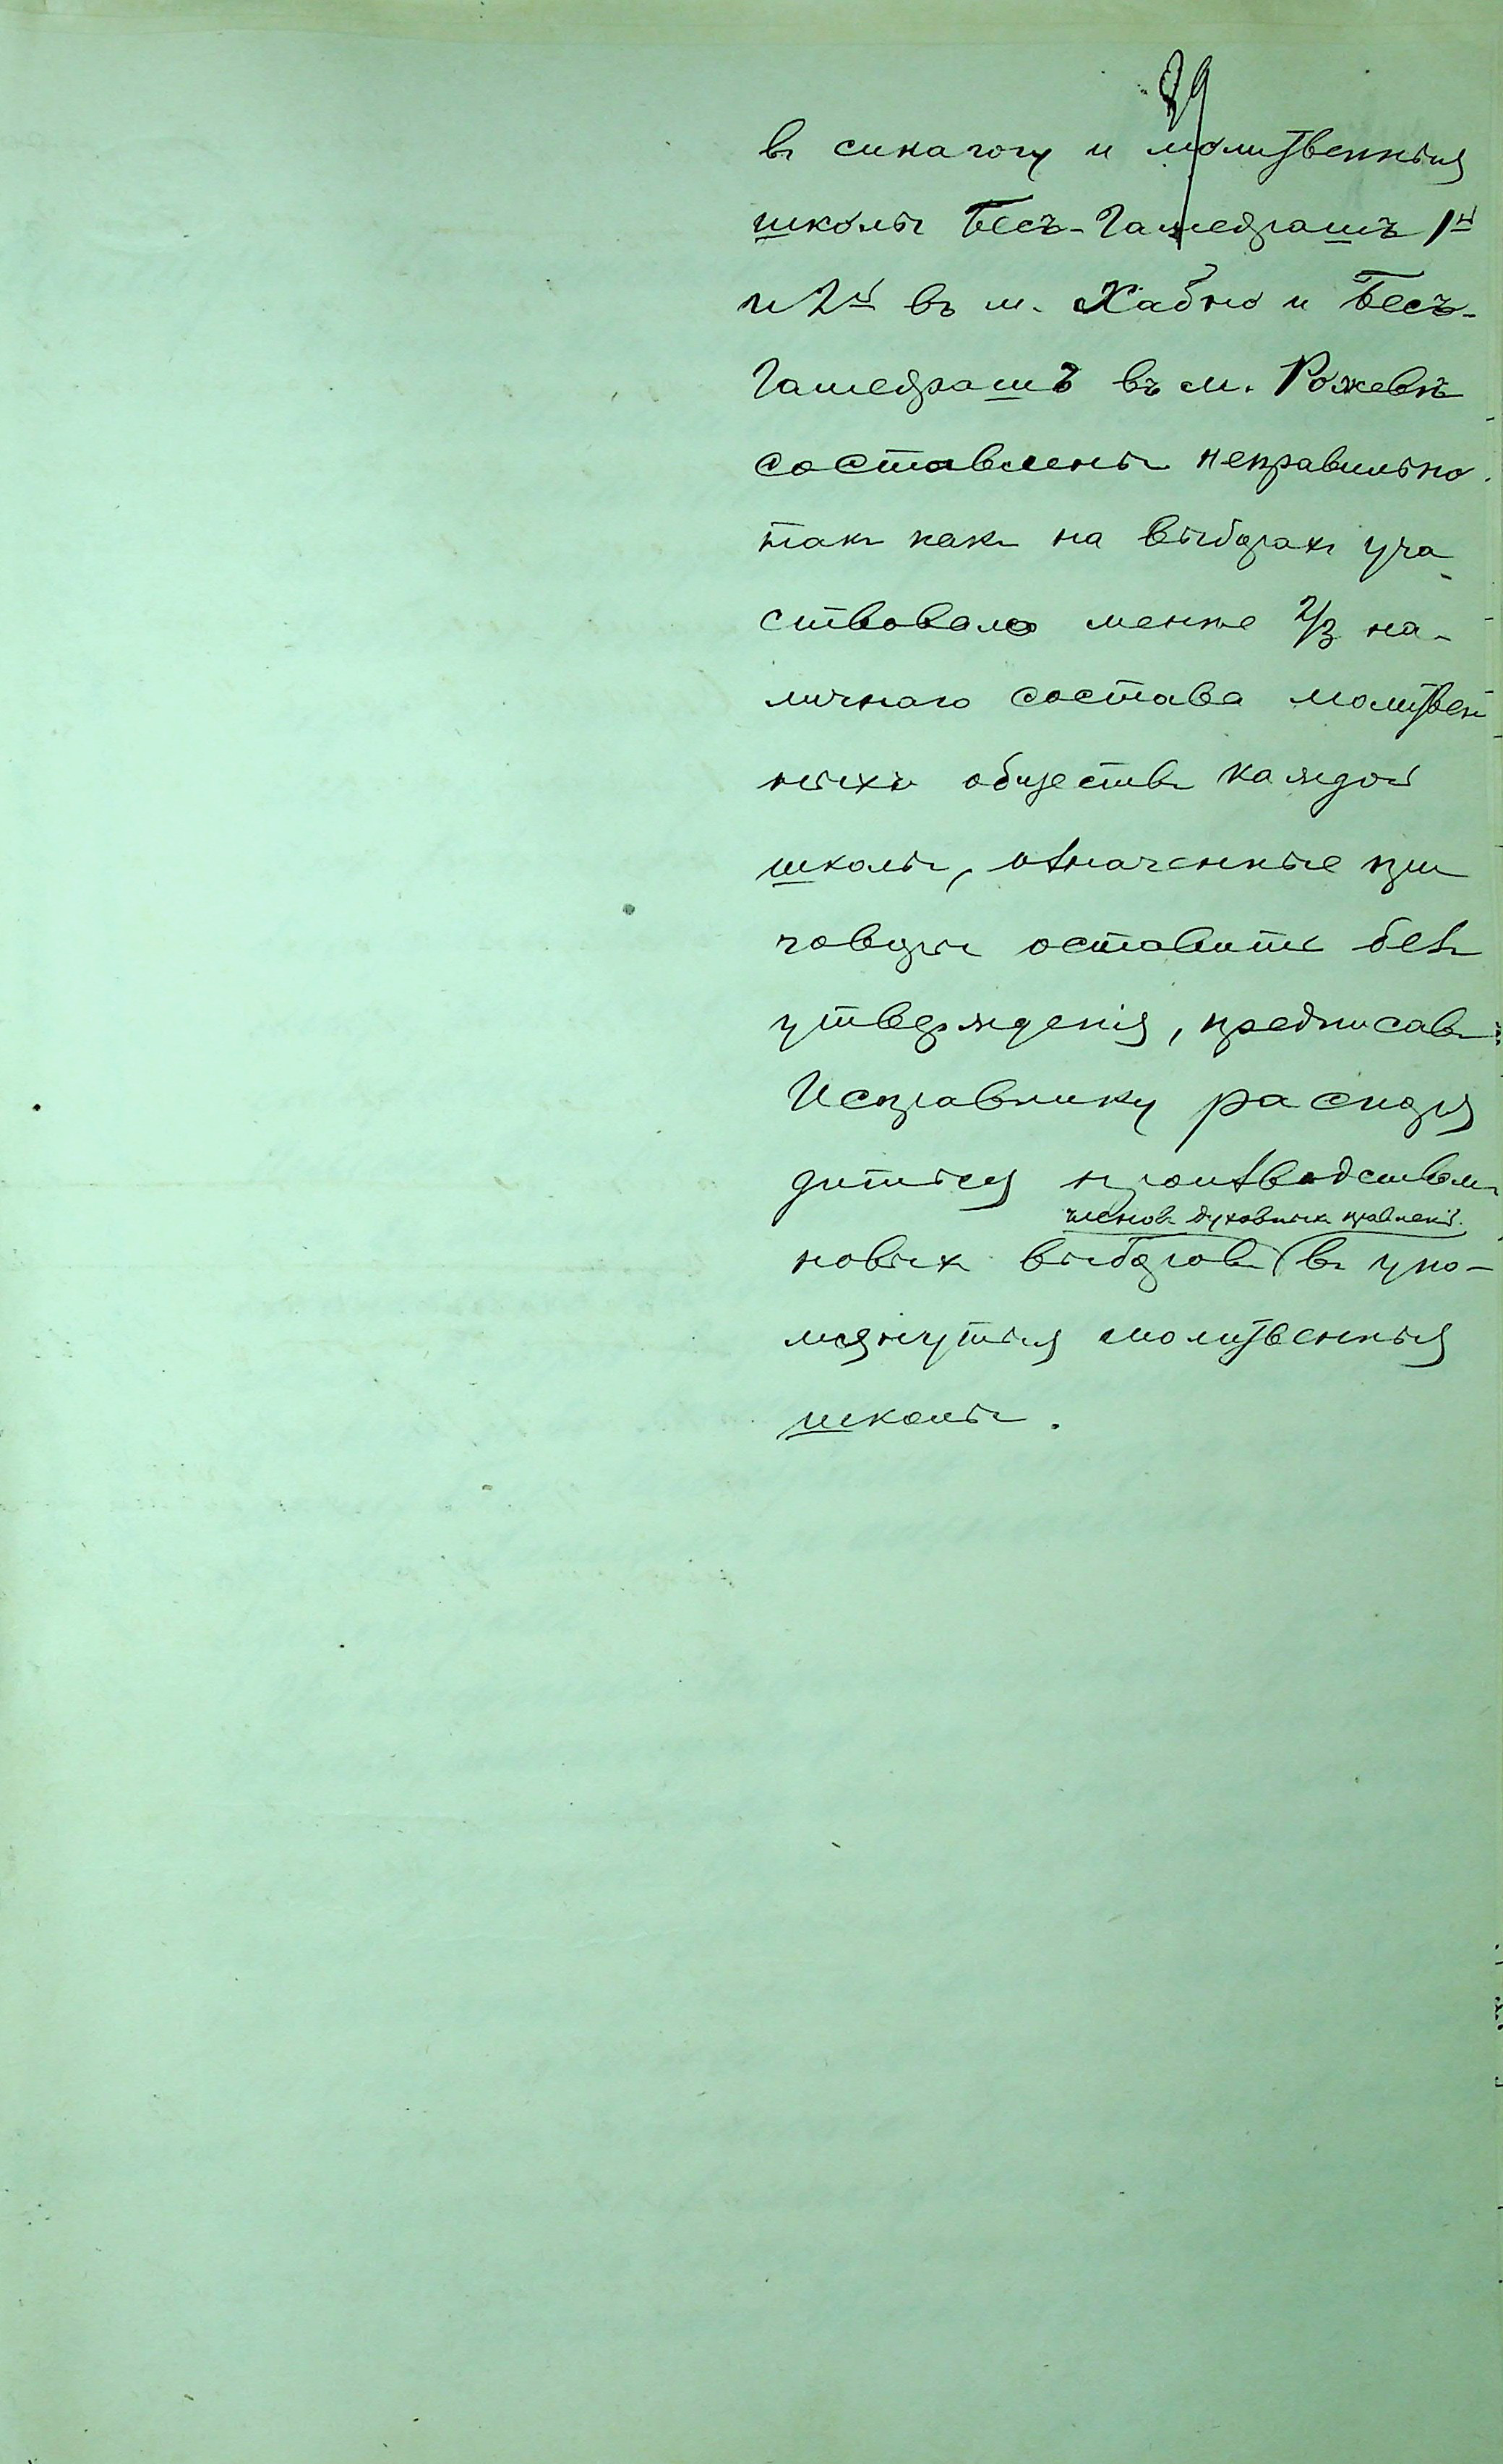 89
въ синагогу и молитвенныя
школы Бесъ-Гамедрашъ 1й
и 2й въ м. Хабно и Бесъ-
Гамедрашъ въ м. Рожевѣ
составлены неправильно
такъ какъ на выборахъ уча
ствовало менѣе 2/3 на-
личнаго состава молитвен
ныхъ обществъ каждой
школы, означенные при
говоры оставить безъ
утвержденія, предписавъ
Исправнику распоря
диться производствомъ
членовъ духовныхъ правленій
новыхъ выборовъ въ упо-
мянутыя молитвенныя
школы.